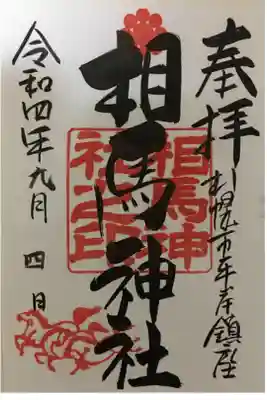 奉拝
札幌市平岸鎮座
相馬神社
相馬神
社之印
令和四年九月
四日